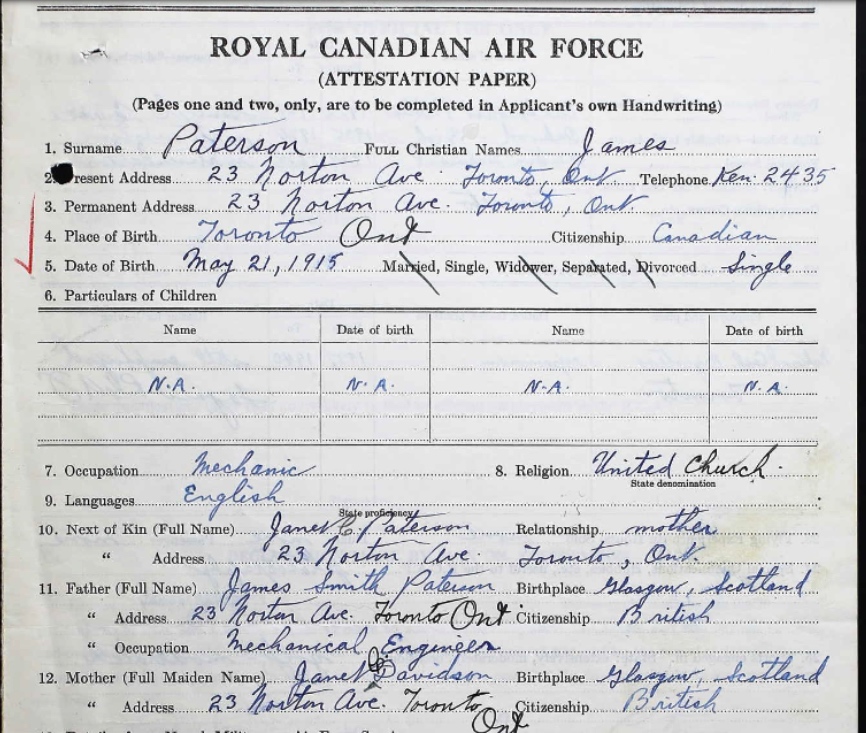 ROYAL CANADIAN AIR FORCE
(ATTESTATION PAPER)
(Pages one and two, only, are to be completed in Applicant's own Handwriting)
1. Surname Paterson FULL Christian Names James
2. Present Address 23 Norton Ave. Toronto, Ont. Telephone Ken. 2435
3. Permanent Address 23 Norton Ave. Toronto, Ont.
4. Place of Birth Toronto Ont Citizenship Canadian
5. Date of Birth May 21, 1915 Married, Single, Widower, Separated, Divorced Single
6. Particulars of Children
Name Date of birth Name Date of birth
N.A. N.A. N.A. N.A.
7. Occupation Mechanic 8. Religion United Church.
State denomination
9. Languages English
State proficiency
10. Next of Kin (Full Name) Janet C. Paterson Relationship mother
" Address 23 Norton Ave. Toronto, Ont.
11. Father (Full Name) James Smith Paterson Birthplace Glasgow, Scotland
" Address 23 Norton Ave. Toronto Ont. Citizenship British
" Occupation Mechanical Engineer
12. Mother (Full Maiden Name) Janet Davidson Birthplace Glasgow, Scotland
" Address 23 Norton Ave. Toronto Ont Citizenship British